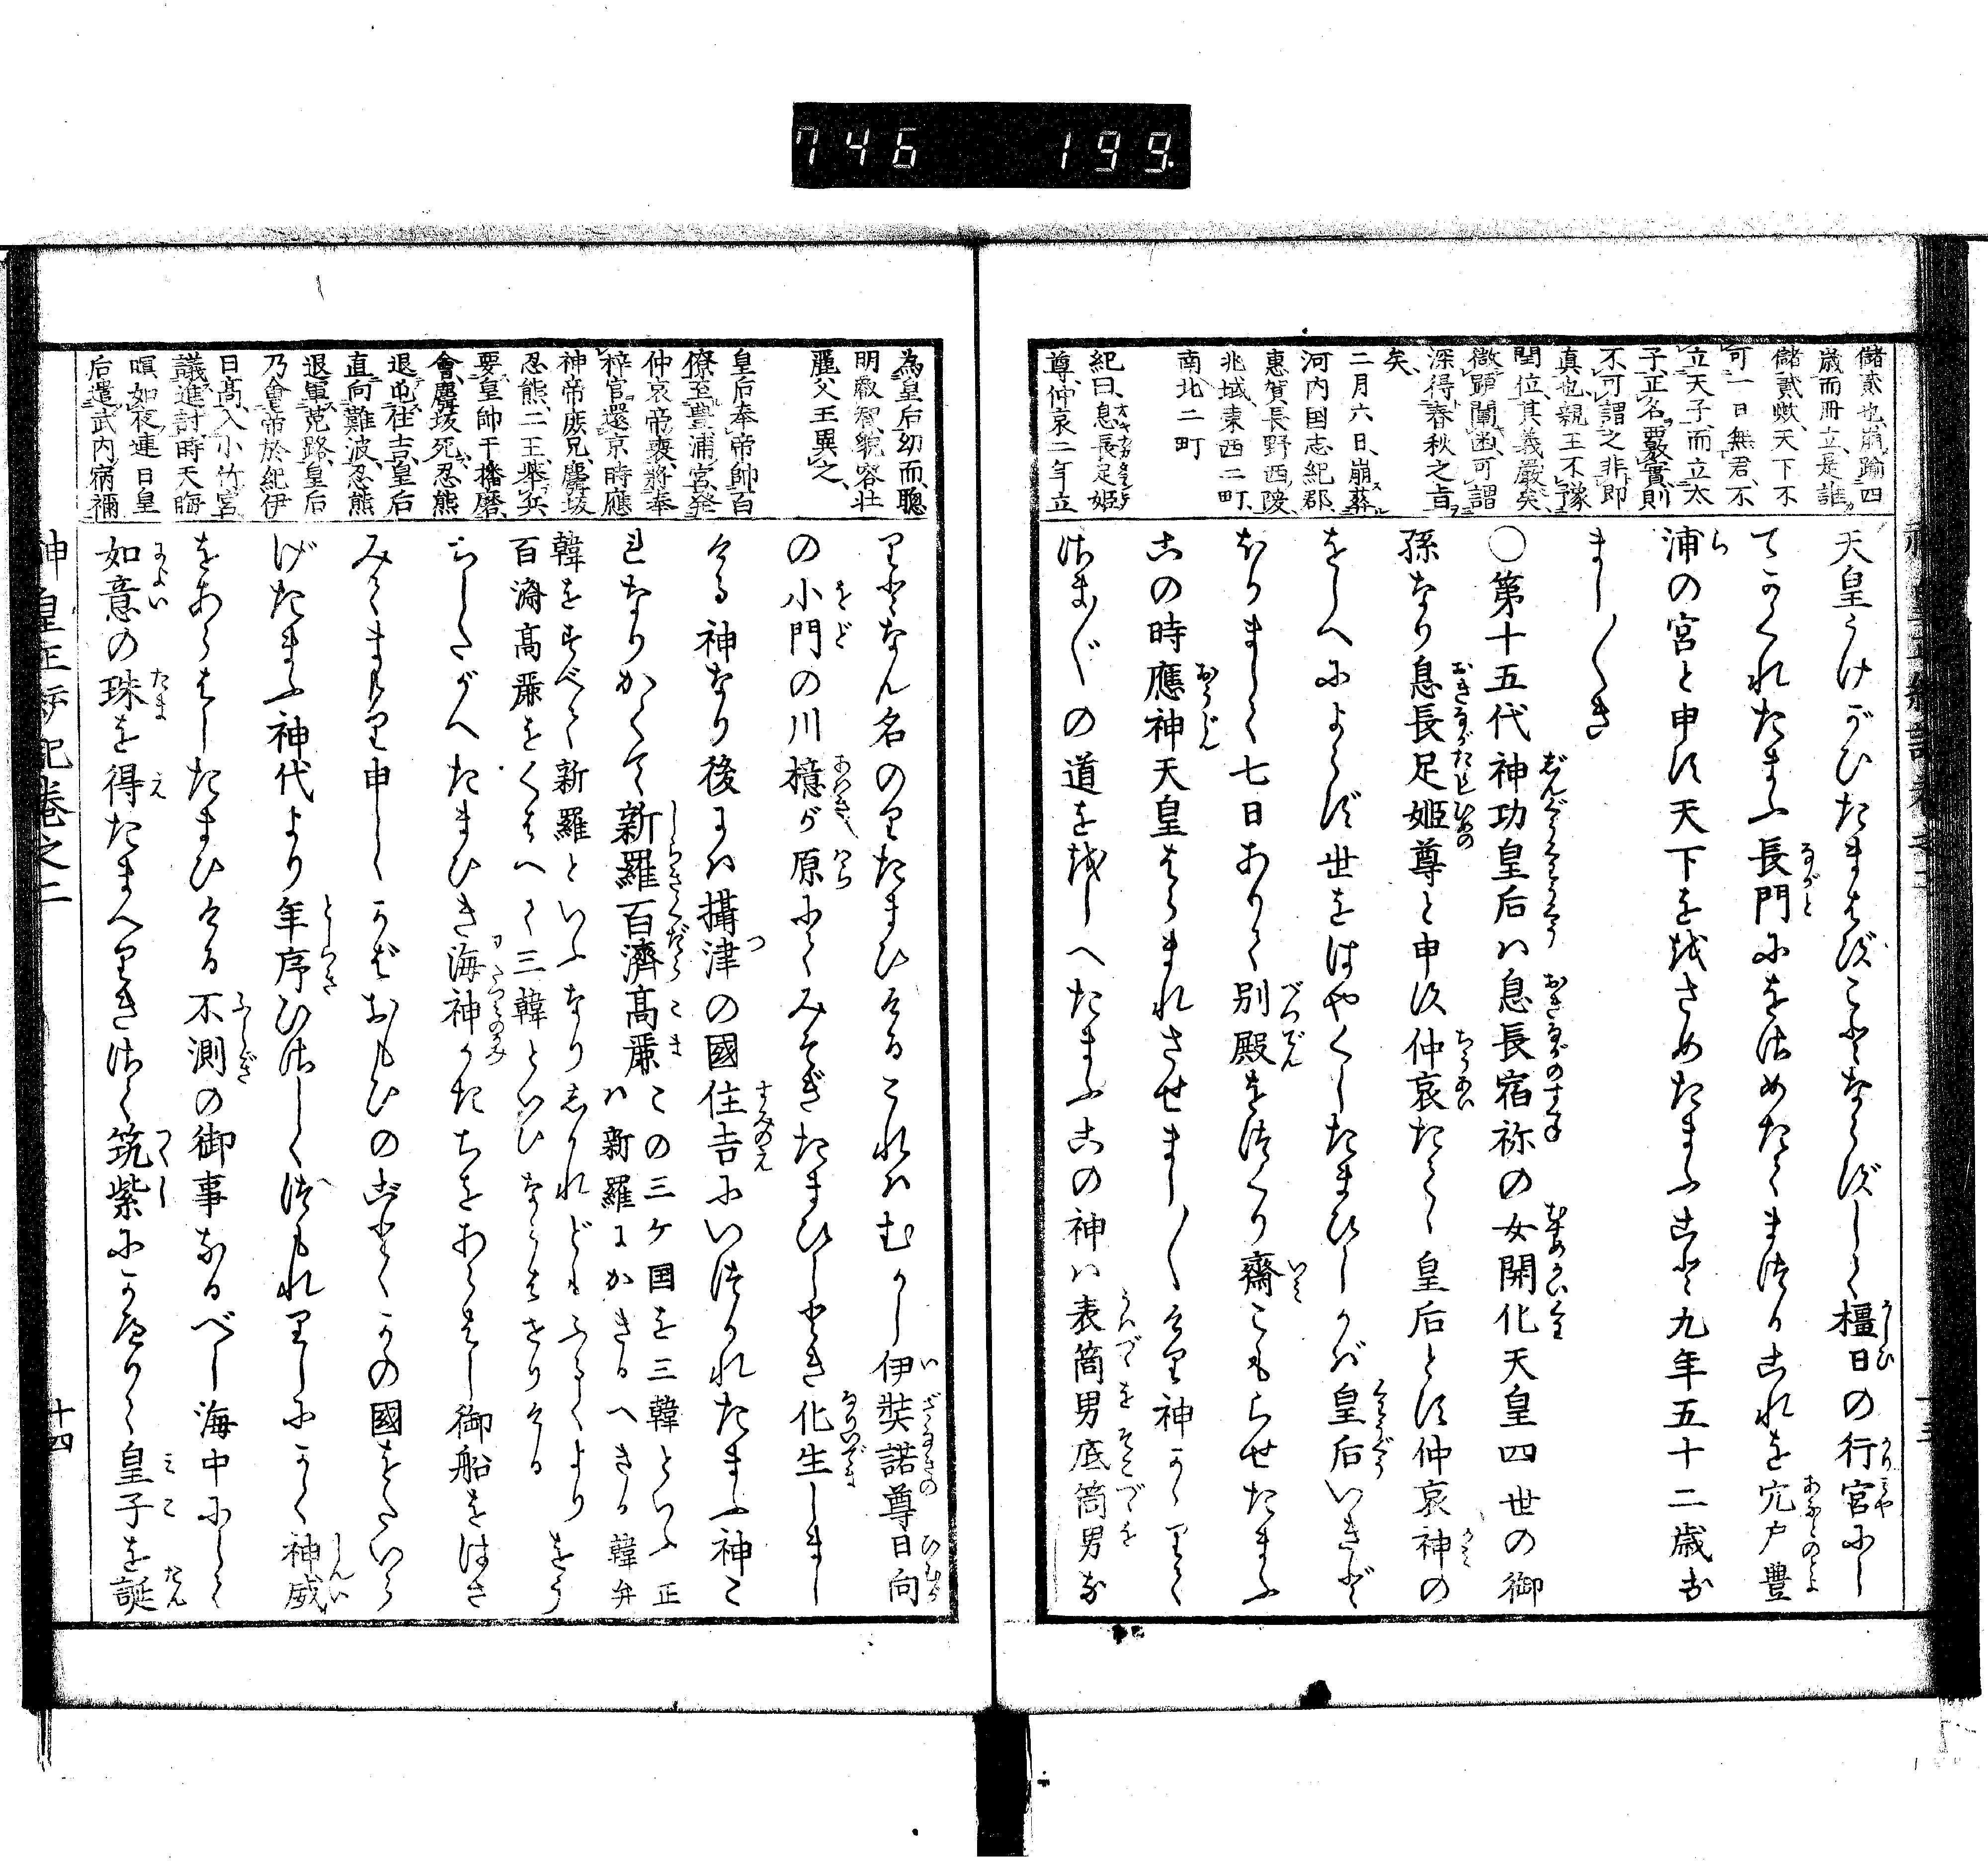 儲貳也崩踰四
歳而冊立是誰
儲貳歟天下不
可一日無君不
立天子而立太
子正名覈實則
不可謂之非即
真也親王不豫
閏位其義嚴矣
微顯闡幽可謂
深得春秋之旨
矣
二月六日崩葬
河内国志紀郡
惠賀長野西陵
兆域東西二町
南北二町
紀曰息長足姫
尊仲哀二年立
天皇うけがひたまはずことならずして橿日の行宮にし
てかくれたまふ長門にをさめたてまつりこれを穴戸豊
浦の宮と申す天下をおさめたまふこと九年五十二歳お
まし〱き
○第十五代神功皇后ハ息長宿祢の女開化天皇四世の御
孫なり息長足姫尊と申す仲哀たてゝ皇后とす仲哀神の
をしへによらず世をはやくしたまひしかバ皇后いきど
ほりまして七日ありて別殿をつくり齋こもらせたまふ
この時應神天皇はらまれさせまし〱けり神かゝりて
さま〲の道をおしへたまふこの神ハ表筒男底筒男な
為皇后幼而聰
明叡智貌容壮
麗父王異之
皇后奉帝帥百
僚至豊浦宮発
仲哀帝喪將奉
梓宮還京時應
神帝庶兄麛坂
忍熊二王挙兵
要皇帥于播磨
會麛坂死忍熊
退屯住吉皇后
直向難波忍熊
退軍菟路皇后
乃會帝於紀伊
日高入小竹宮
議進討時天晦
暝如夜連日皇
后遣武内宿禰
りとなん名のりたまひけるこれハむかし伊弉諾尊日向
の小門の川檍が原にてみそぎたまひしとき化生しまし
ける神なり後にハ攝津の國住吉にいつかれたまふ神こ
れなりかくて新羅百濟高麗この三ケ国を三韓といふ正
ハ新羅にかきるへきか韓弁
韓をすべて新羅といふなりしかれどもふるくより
百濟高麗をくはへて三韓といひならはせりけるをう
ちしたがへたまひき海神かたちをあらはし御船をはさ
みてまほり申しゝかばおもひのごとくかの國をたいら
げたまふ神代より年序ひさしくつもれりしにかく神威
をあらはしたまひける不測の御事なるべし海中にして
如意の珠を得たまへりきさて筑紫にかへりて皇子を誕
神皇正統記巻之二
十四
746 199